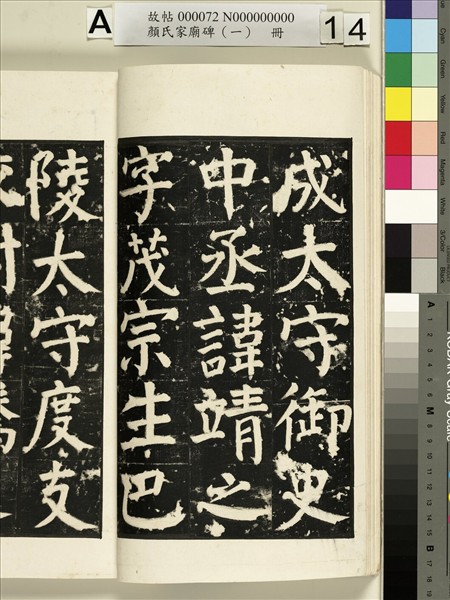 A
故帖 000072 N000000000
顏氏家廟碑（一） 冊
14
成太守御史
中丞諱靖之
字茂宗生巴
陵太守度支
Cyan
Green
Yellow
Red
Magenta
White
3/Color
Black
A 1 2 3 4 5 6 M 8 9 10 11 12 13 14 15 B 17 18 19